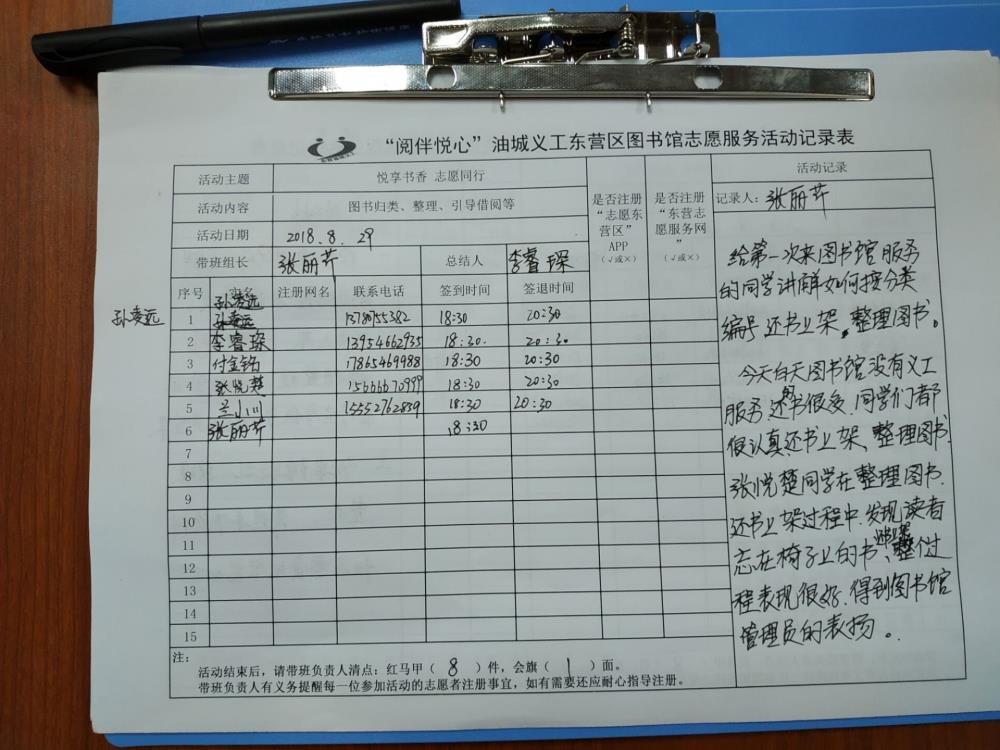 “阅伴悦心”油城义工东营区图书馆志愿服务活动记录表
活动主题 悦享书香 志愿同行
活动内容 图书归类、整理、引导借阅等
活动日期 2018.8.29
带班组长 张丽芹 总结人 李睿琛
是否注册“志愿东营区”APP（√或×）
是否注册“东营志愿服务网”（√或×）
序号 姓名 注册网名 联系电话 签到时间 签退时间
孙凌远
孙凌远 1 孙凌远 13780755382 18:30 20:30
2 李睿琛 13954662935 18:30. 20:30
3 付金铭 17865469988 18:30 20:30
4 张悦楚 15666670999 18:30 20:30
5 兰小川 15552762859 18:30 20:30
6 张丽芹 18:30
7
8
9
10
11
12
13
14
15
活动记录
记录人：张丽芹
给第一次来图书馆服务
的同学讲解如何按分类
编号还书上架，整理图书。
今天白天图书馆没有义工
服务，还的书很多，同学们都
很认真还书上架、整理图书
张悦楚同学在整理图书、
还书上架过程中，发现读者
忘在椅子上的书、整个过
程表现很好，得到图书馆
管理员的表扬。
注：
活动结束后，请带班负责人清点：红马甲（ 8 ）件，会旗（ 1 ）面。
带班负责人有义务提醒每一位参加活动的志愿者注册事宜，如有需要还应耐心指导注册。